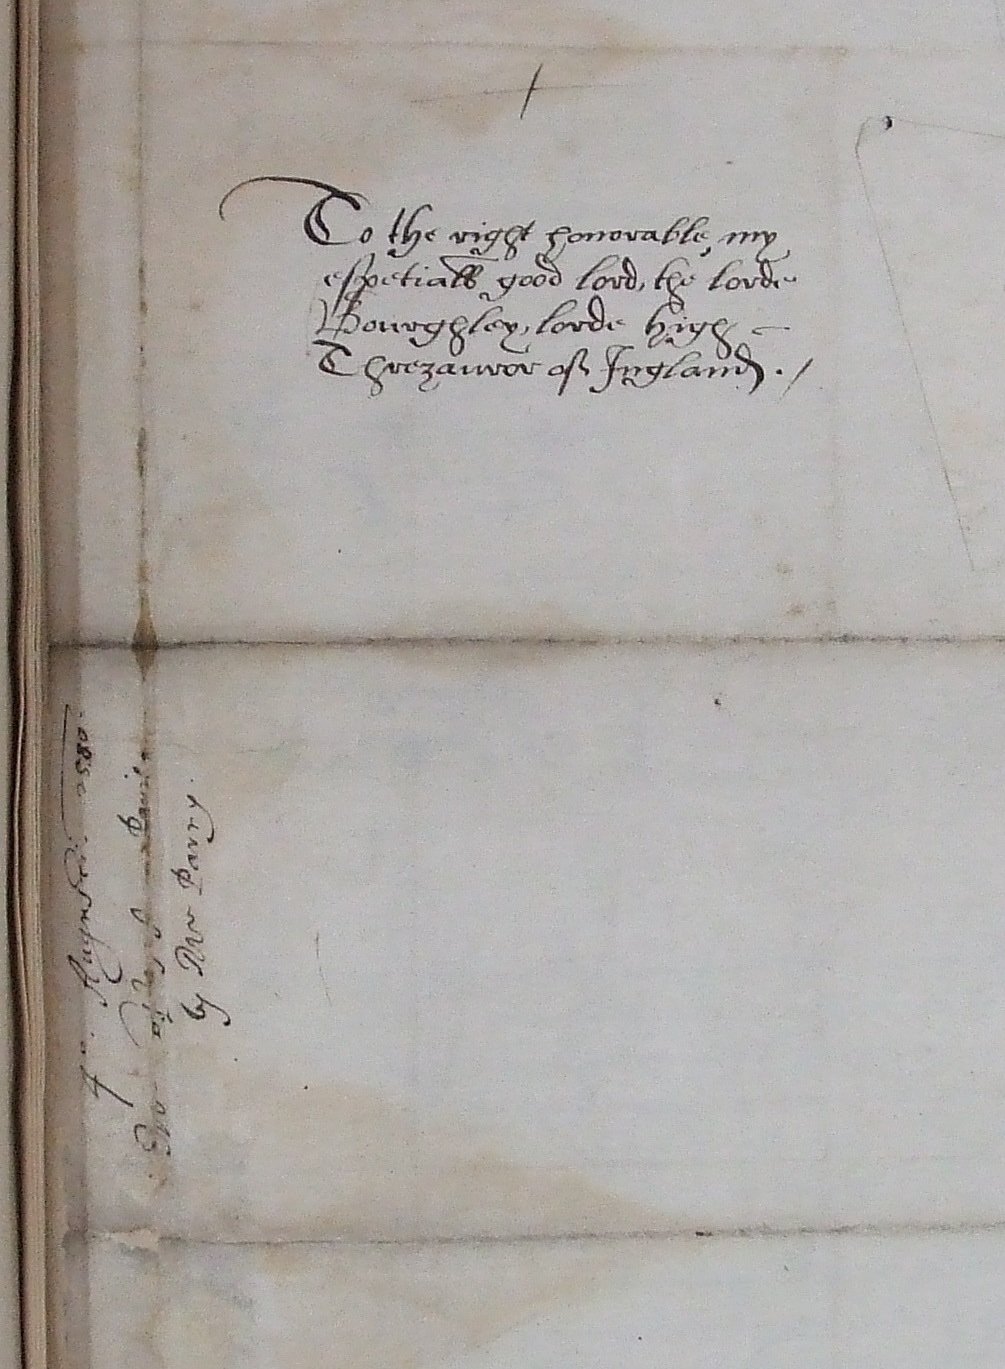 To the right honorable, my
espetiall good lord, the lorde
Bourghley, lorde high
Threzauror off Ingland.
1580.
by Mr Parry.